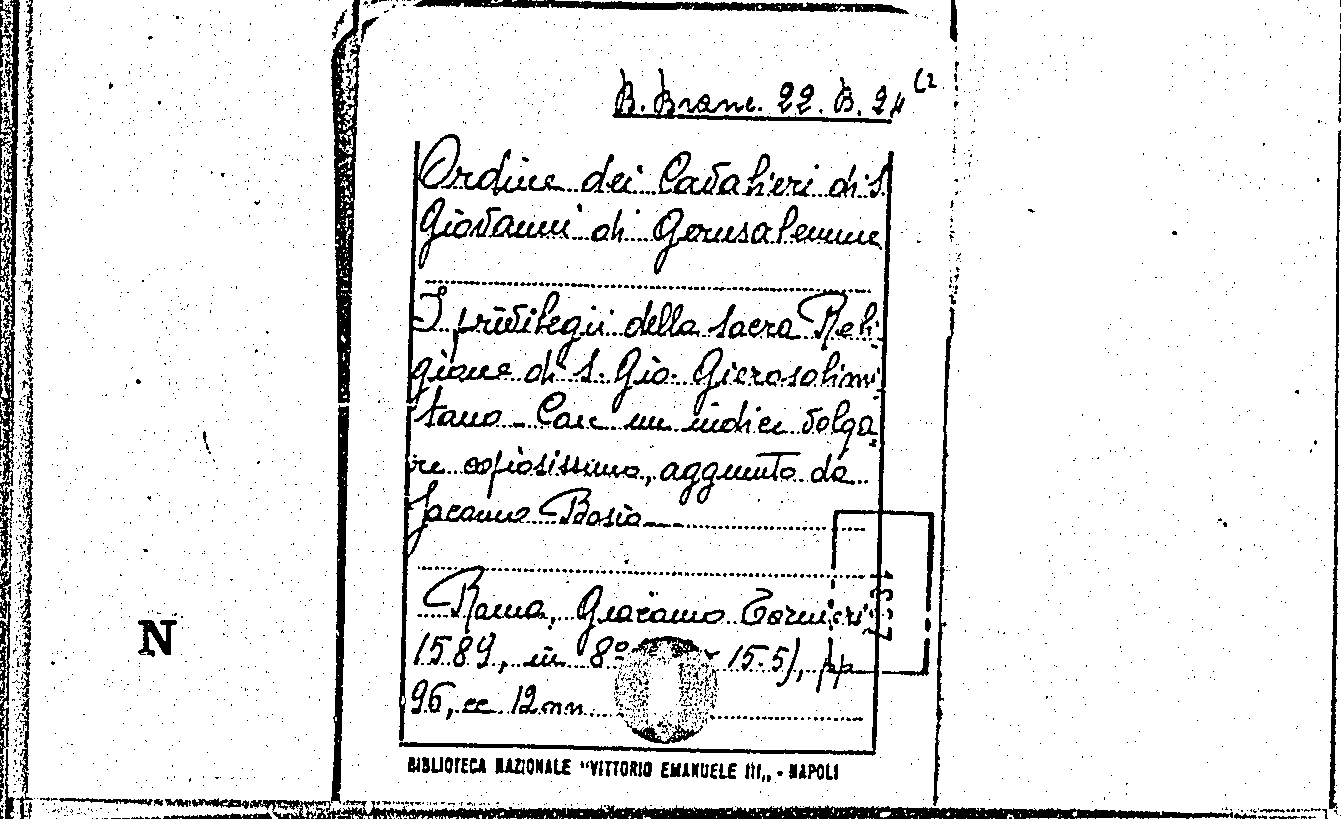 B. Branc. 22. B. 24 (2
Ordine dei Cavalieri di S.
Giovanni di Gerusalemme
I privilegii della sacra Reli-
gione di S. Gio. Gierosolimi-
tano - Con un indice volga-
re copiosissimo, aggiunto da
Jacomo Bosio
Roma, Giacomo Tornieri
1589, in 8º 15.5), pp
96, cc 12 nn.
BIBLIOTECA NAZIONALE "VITTORIO EMANUELE III" - NAPOLI
N